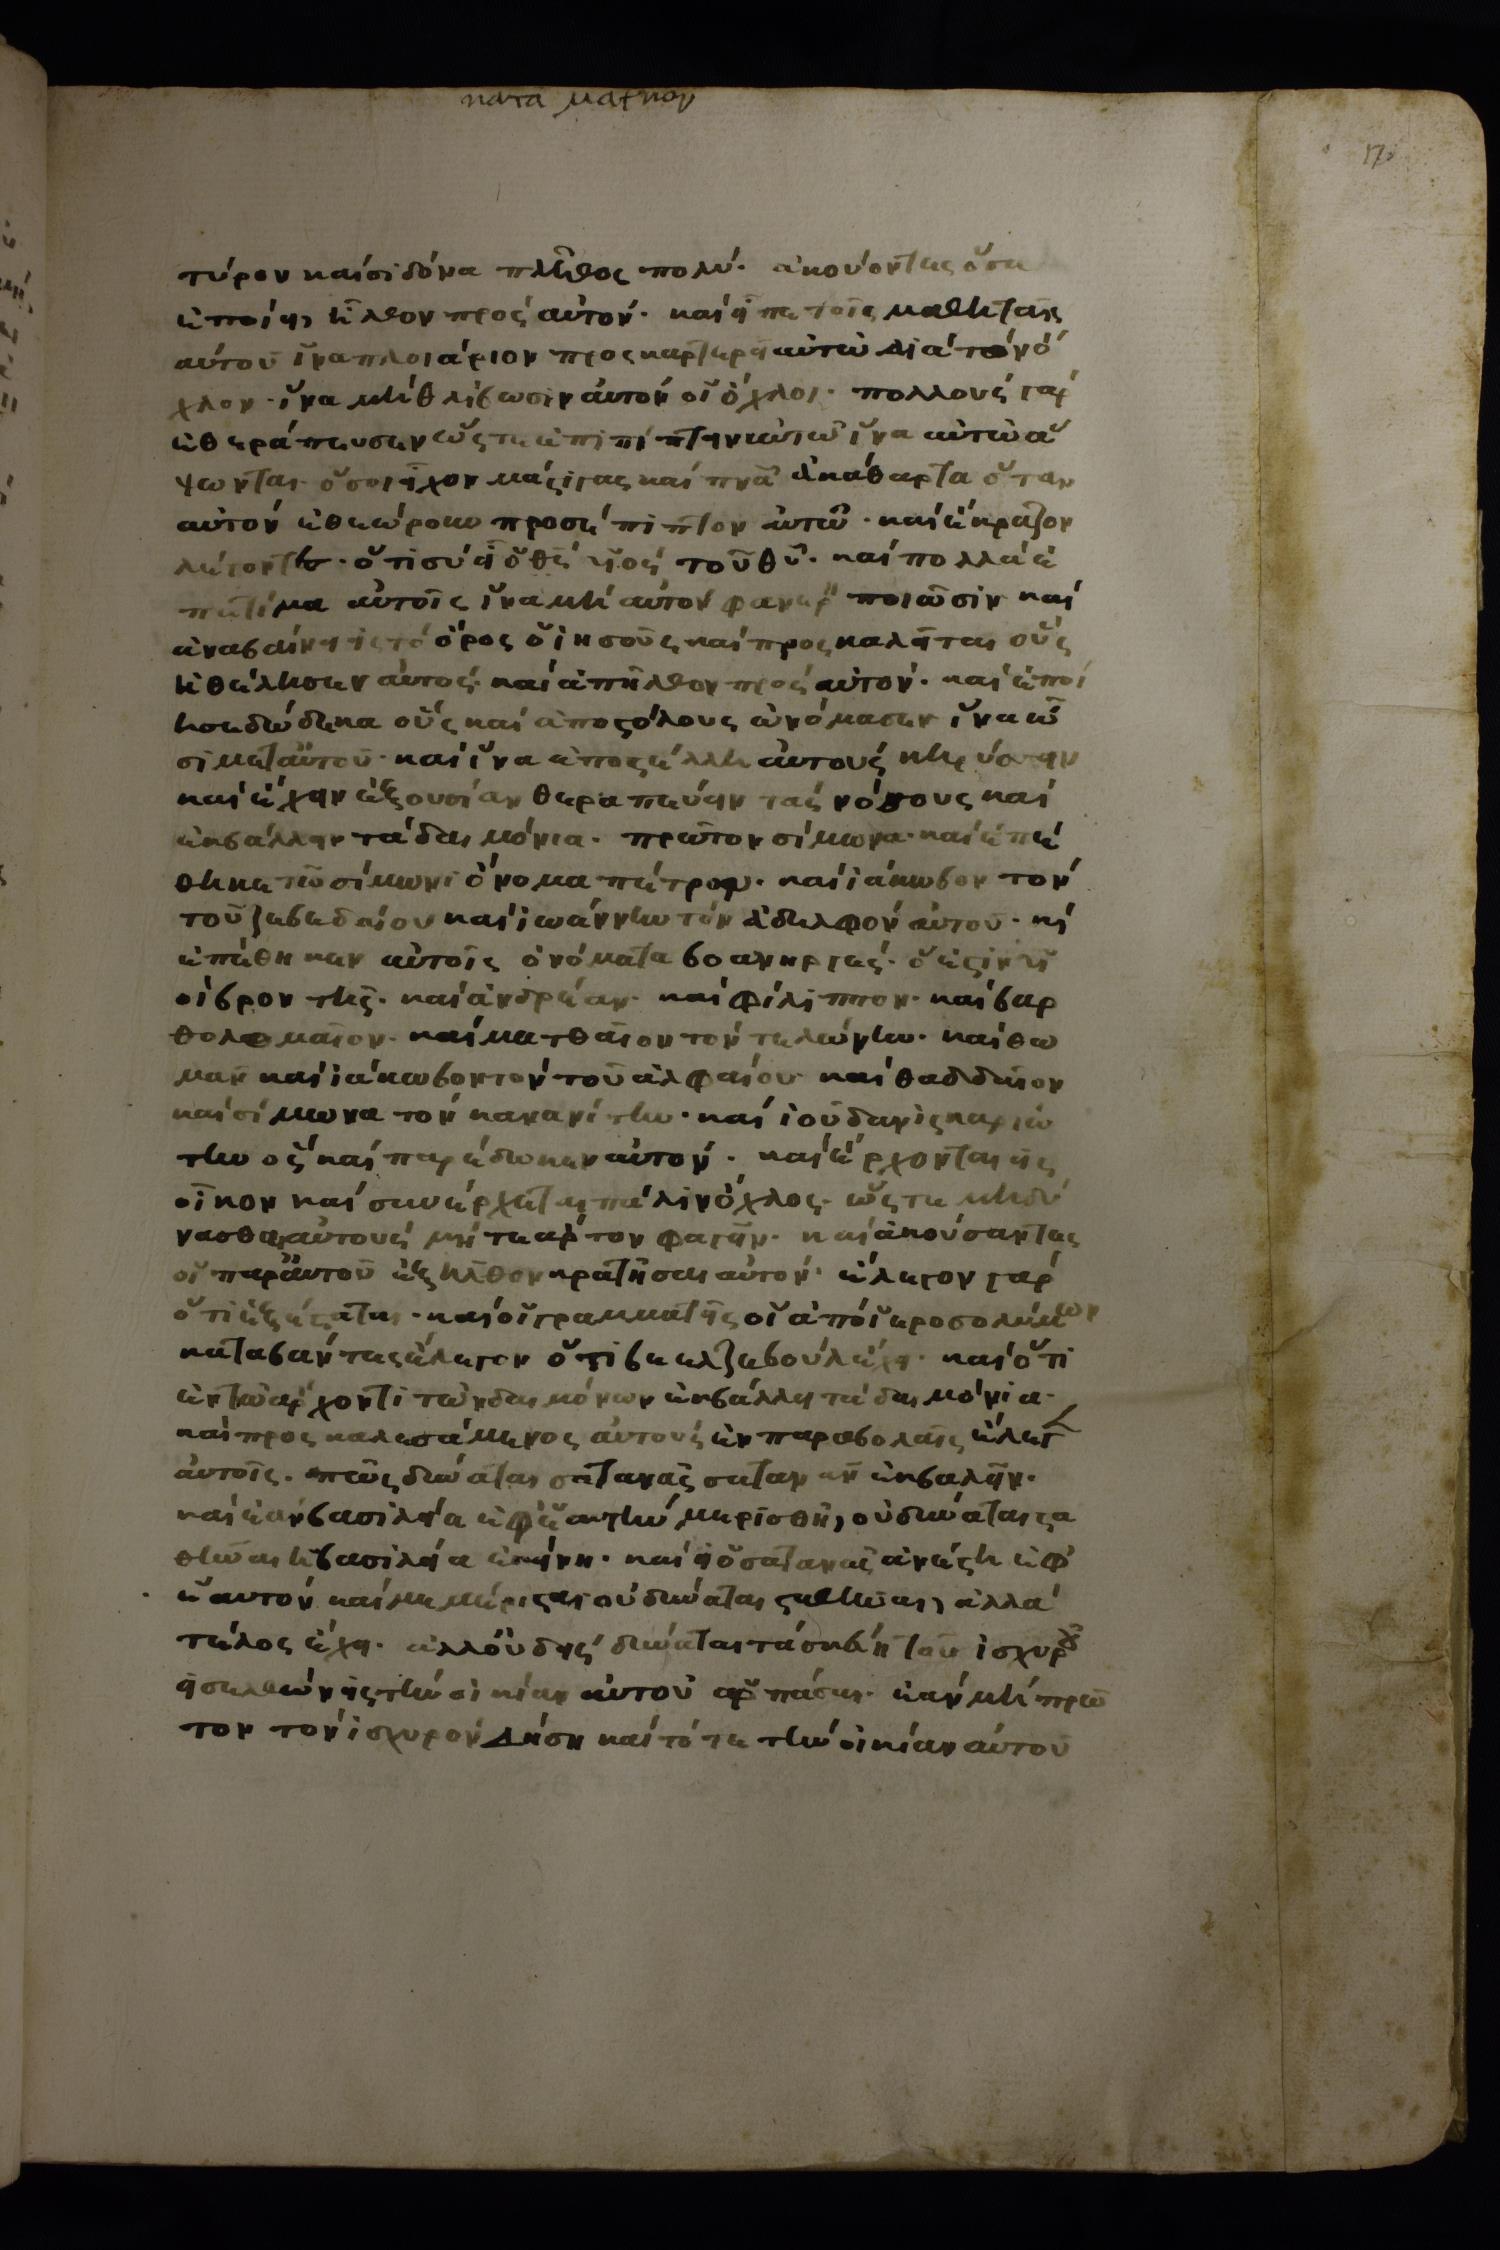 κατα μαρκον
17
τύρον καί σιδόνα πλῆθος πολύ· ἀκούοντες ὅσα
ἐποίει, ἦλθον πρός αὐτόν· καί εἶπε τοῖς μαθηταῖς
αὐτοῦ ἵνα πλοιάριον προς καρτερῆ αὐτῶ διά τόν ὄ
χλον· ἵνα μή θλίβωσιν αὐτόν οἵ ὄχλοι· πολλούς γάρ
ἐθεράπευσεν ὥςτε ἐπιπίπτειν αὐτῶ ἵνα αὐτῶ ἅ
ψωνται· ὅσοι εἶχον μάςιγας καί πνᾶ ἀκάθαρτα ὅταν
αὐτόν ἐθεώρουν προσέπιπτον ἀυτῶ· καί ἔκραζον
λέγοντες· ὅτι σύ εἶ ὅ θς υἵος τοῦ θῦ· καί πολλά ἐ
πετίμα ἀυτοῖς ἵνα μή αὐτόν φανερ ποιῶσιν καί
ἀναβαίνει εἰς τό ὄρος ὅ ἰησοῦς καί προς καλεῖται οὕς
ἤθέλησεν ἀυτος· καί ἀπῆλθον πρός αὐτόν· καί ἐποί
ησε δώδεκα οὕς καί ἀποςόλους ὠνόμασεν ἵνα ὦ
σι μετἀυτοῦ· καί ἵνα ἀποςέλλη ἀυτούς κηρύσσειν
καί ἔχειν ἐξουσίαν θεραπεύειν τάς νόσους καί
ἐκβάλλειν τά δαιμόνια· πρῶτον σίμωνα· καί ἐπέ
θηκε τῶ σίμωνι ὄνομα πέτρον· καί ἰάκωβον τόν
τοῦ ζεβεδαίου καί ἰωάννην τόν ἀδελφόν ἀυτοῦ· κί
ἐπέθηκεν αὐτοῖς ὀνόματα βοανηργές· ὅ ἐςίν υἵ
οί βροντῆς· καί ἀνδρέαν· καί φίλιππον· καί βαρ
θολομαῖον· καί ματθαῖον τόν τελώνην· καί θω
μᾶν καί ἰάκωβον τόν τοῦ ἀλφαίου καί θαδδαῖον
καί σίμωνα τόν κανανίτην· καί ἰούδαν ἰςκαριώ
την ὅς καί παρέδωκεν αὐτόν· καί ἔρχονται εἰς
οἶκον καί συνέρχεται πάλιν ὄχλος· ὥςτε μή δύ
νασθαι αὐτούς μήτε ἄρτον φαγεῖν· καί ἀκούσαντες
οἵ παρἀυτοῦ ἐξῆλθον κρατῆσαι αὐτόν· ἔλεγον γάρ
ὅτι ἐξέςαται· καί οἵ γραμματεῖς οἵ ἀπό ἵεροσολύμων
καταβάντες ἔλεγον ὅτι βεελζεβούλ ἔχει· καί ὅτι
ἐν τῶ ἄρχοντι τῶν δαιμόνων ἐκβάλλει τά δαιμόνια·
καί προς καλεσάμενος ἀυτούς ἐν παραβολαῖς ἔλεγ
ἀυτοῖς· πῶς δύναται σατανᾶς σατανᾶν ἐκβαλεῖν·
καί ἐάν βασιλεία ἐφἑαυτήν μερισθῆ, οὐ δύναται ςα
θῆναι ἡ βασιλεία ἐκείνη· καί εἰ ὅ σατανᾶς ἀνέςη ἐφ
ἑαυτόν καί μεμέριςαι οὐ δύναται ςαθῆναι, ἀλλά
τέλος ἔχει· ἀλλ᾽ ὀυδείς δύναται τά σκεύη τοῦ ἰσχυρ
εἰσελθών εἰς τήν οἰκίαν αὐτοῦ ἅρπάσαι· ἐάν μή πρῶ
τον τόν ἰσχυρόν δήση καί τότε τήν οἰκίαν αὐτοῦ